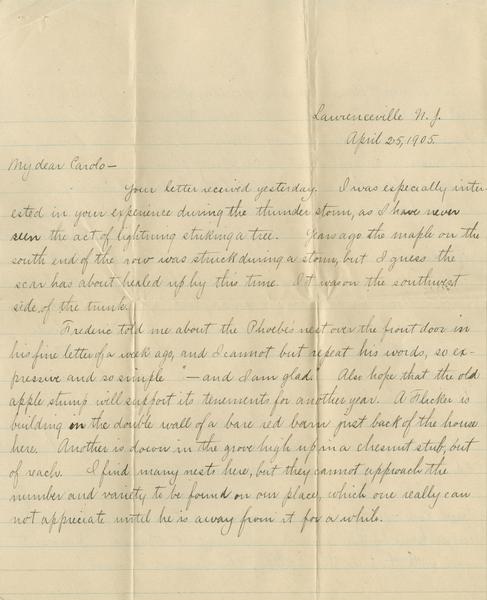 Lawrenceville N. J.
April 25, 1905.
My dear Carolo—
Your letter received yesterday. I was especially inter-
ested in your experience during the thunder storm, as I have never
seen the act of lightning striking a tree. Years ago the maple on the
south end of the row was struck during a storm, but I guess the
scar has about healed up by this time. It was on the southwest
side, of the trunk.
Frederic told me about the Phoebe's nest over the front door in
his fine letter of a week ago, and I cannot but repeat his words, so ex-
pressive and so simple "— and I am glad." Also hope that the old
apple stump will support its tenements for another year. A Flicker is
building on the double wall of a bare red barn just back of the house
here. Another is down in the grove high up in a chesnut stub, out
of reach. I find many nests here, but they cannot approach the
number and variety to be found on our place, which one really can
not appreciate until he is away from it for a while.